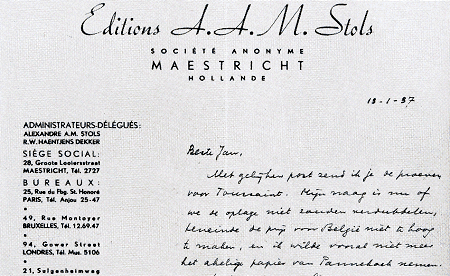 Editions A.A.M. Stols
SOCIÉTÉ ANONYME
MAESTRICHT
HOLLANDE
13-1-37
ADMINISTRATEURS-DÉLÉGUÉS:
ALEXANDRE A.M. STOLS
R.W. HAENTJENS DEKKER
SIÈGE SOCIAL:
28, Groote Looiersstraat
MAESTRICHT, Tél. 2727
BUREAUX:
25, Rue du Fbg. St. Honoré
PARIS, Tél. Anjou 25-47
•
49, Rue Montoyer
BRUXELLES, Tél. 12.69.47
•
94, Gower Street
LONDRES, Tél. Mus. 5106
•
21,Selgenheimweg
Beste Jan,
Met gelijken post zend ik je de proeven
voor Toussaint. Mijn vraag is nu of
we de oplage niet zouden verdubbelen,
teneinde de prijs voor België niet te hoog
te maken, en ik wilde vooral niet meer
het akelige papier van Pannekoek nemen.